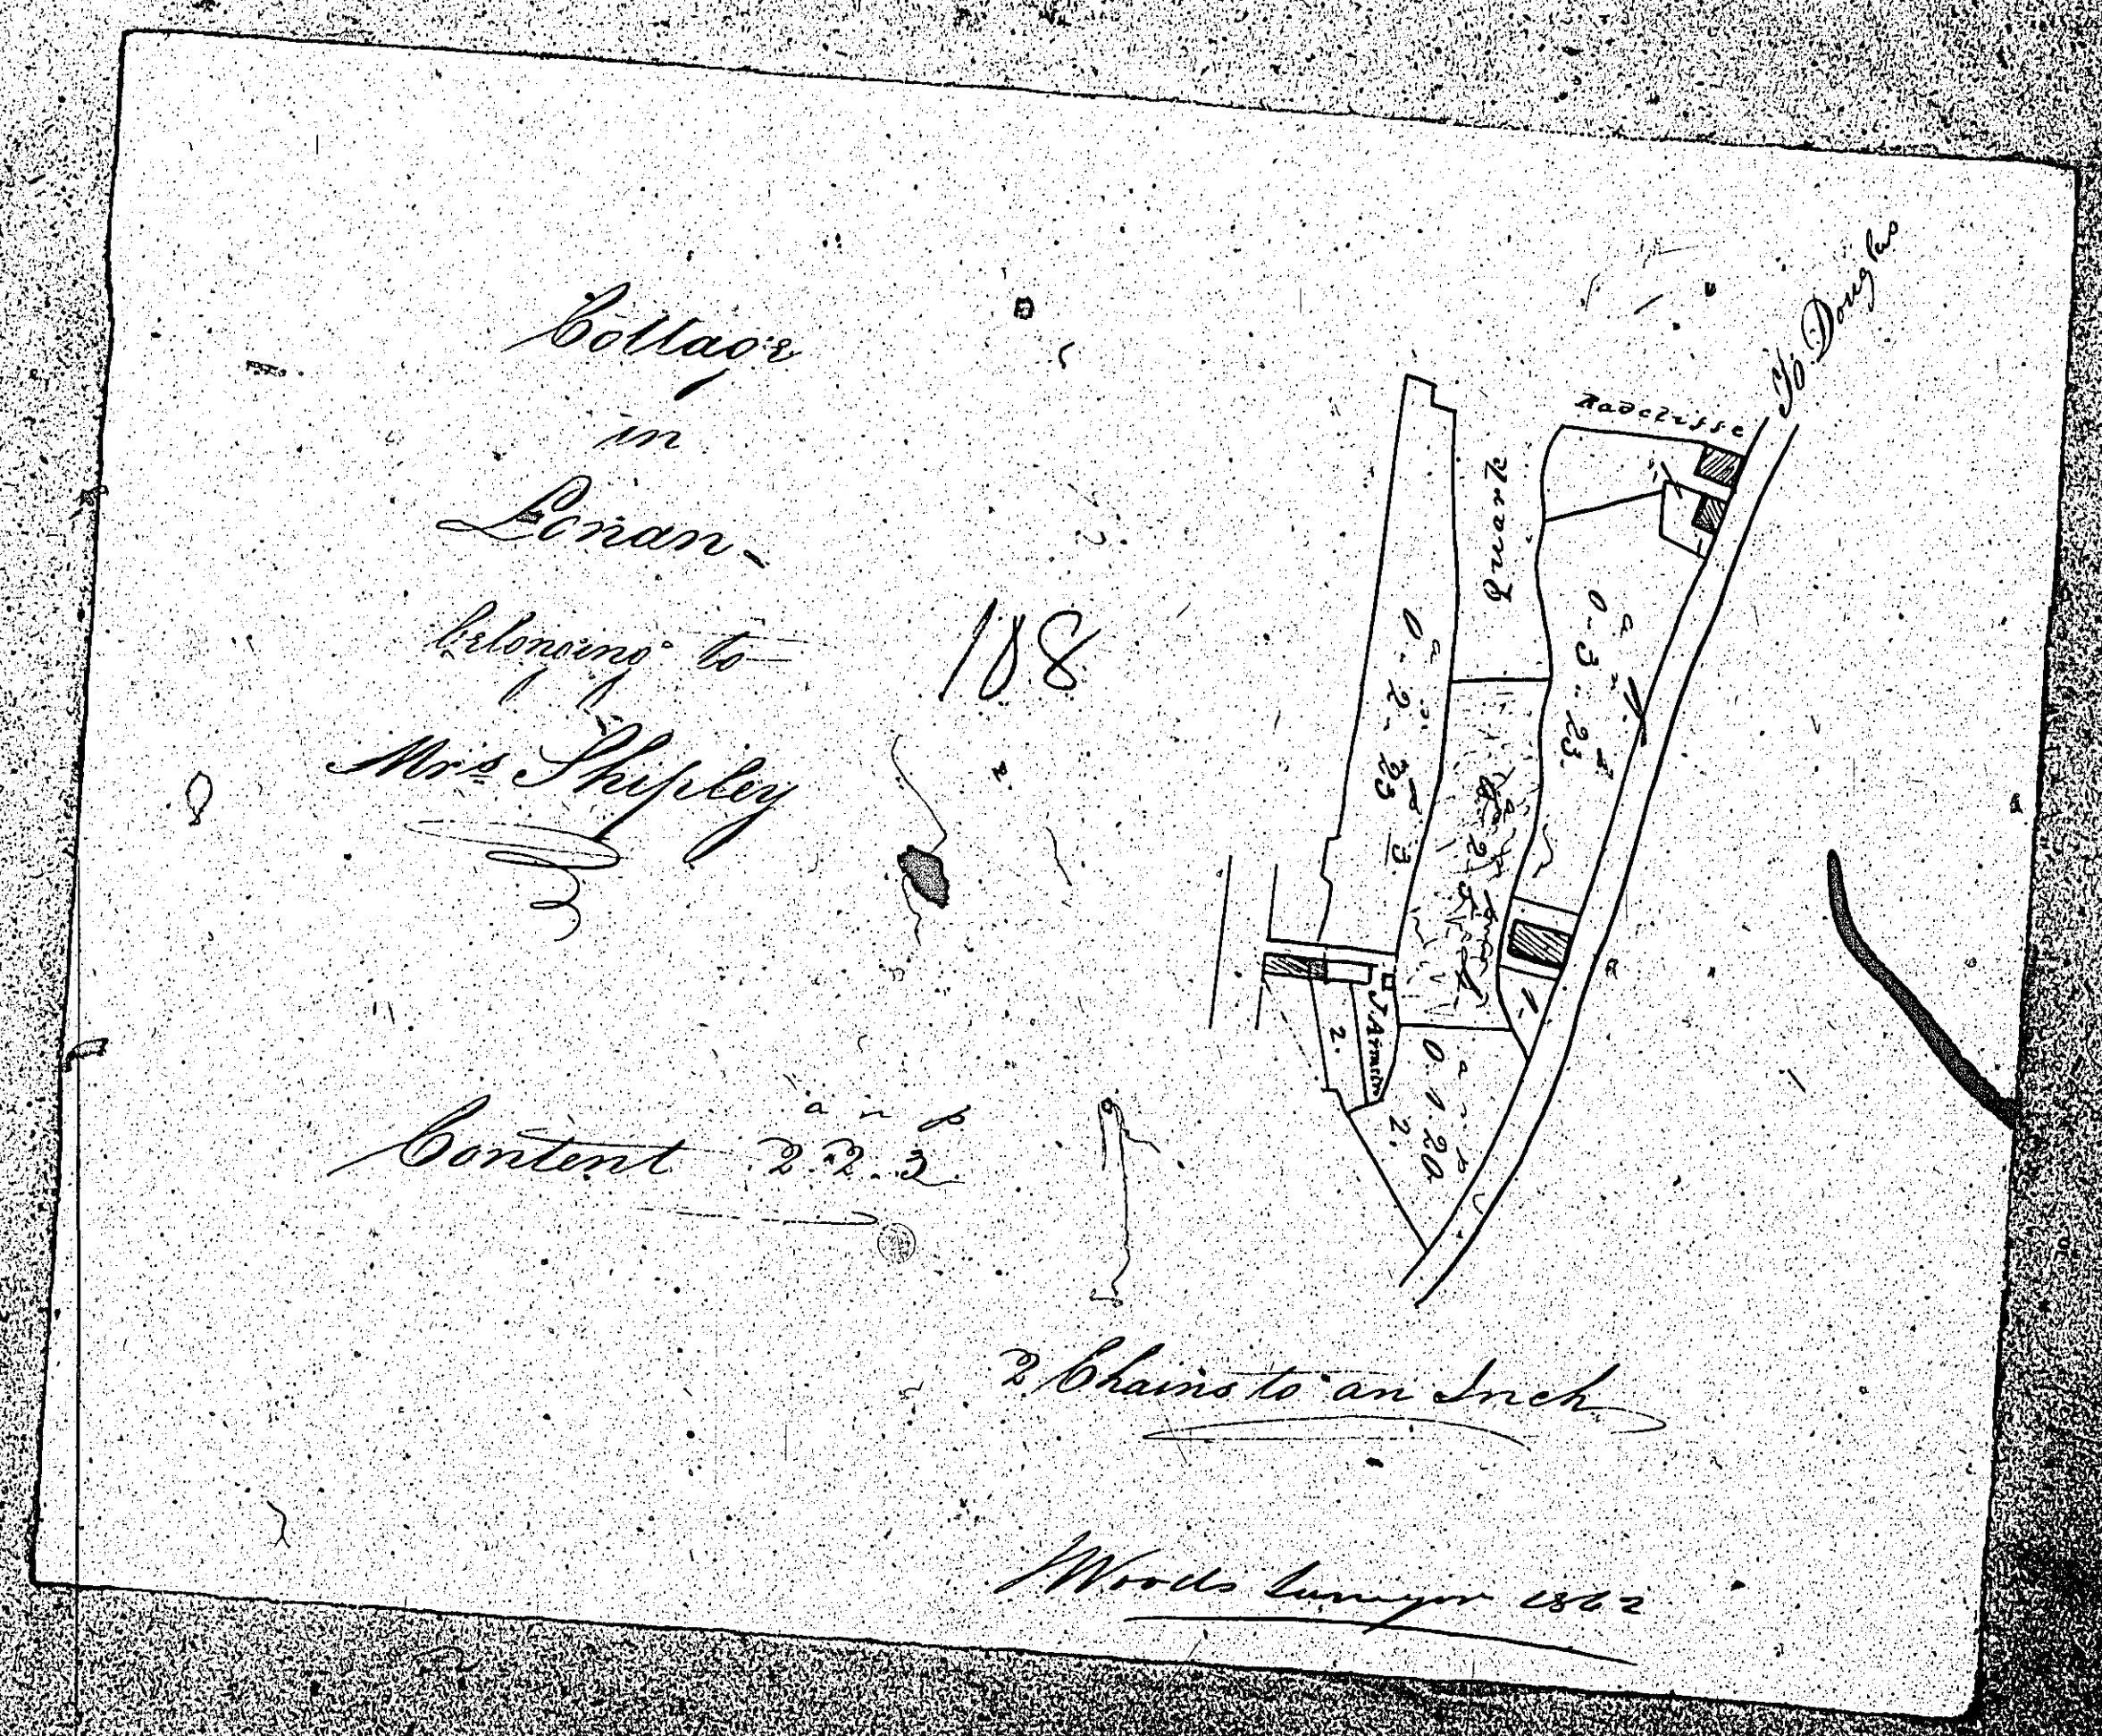 Cottage
in
Lonan -
belonging to
188
Mrs Shipley
Content
a r p
2. 2. 3
To Douglas
Radcliffe
Quark
a r p
0. 3. 23.
1.
a r p
0. 2. 23
3.
1.
J Armstr
2.
a r p
0. 1. 20
2.
2 Chains to an Inch
J Woods Surveyor 1862